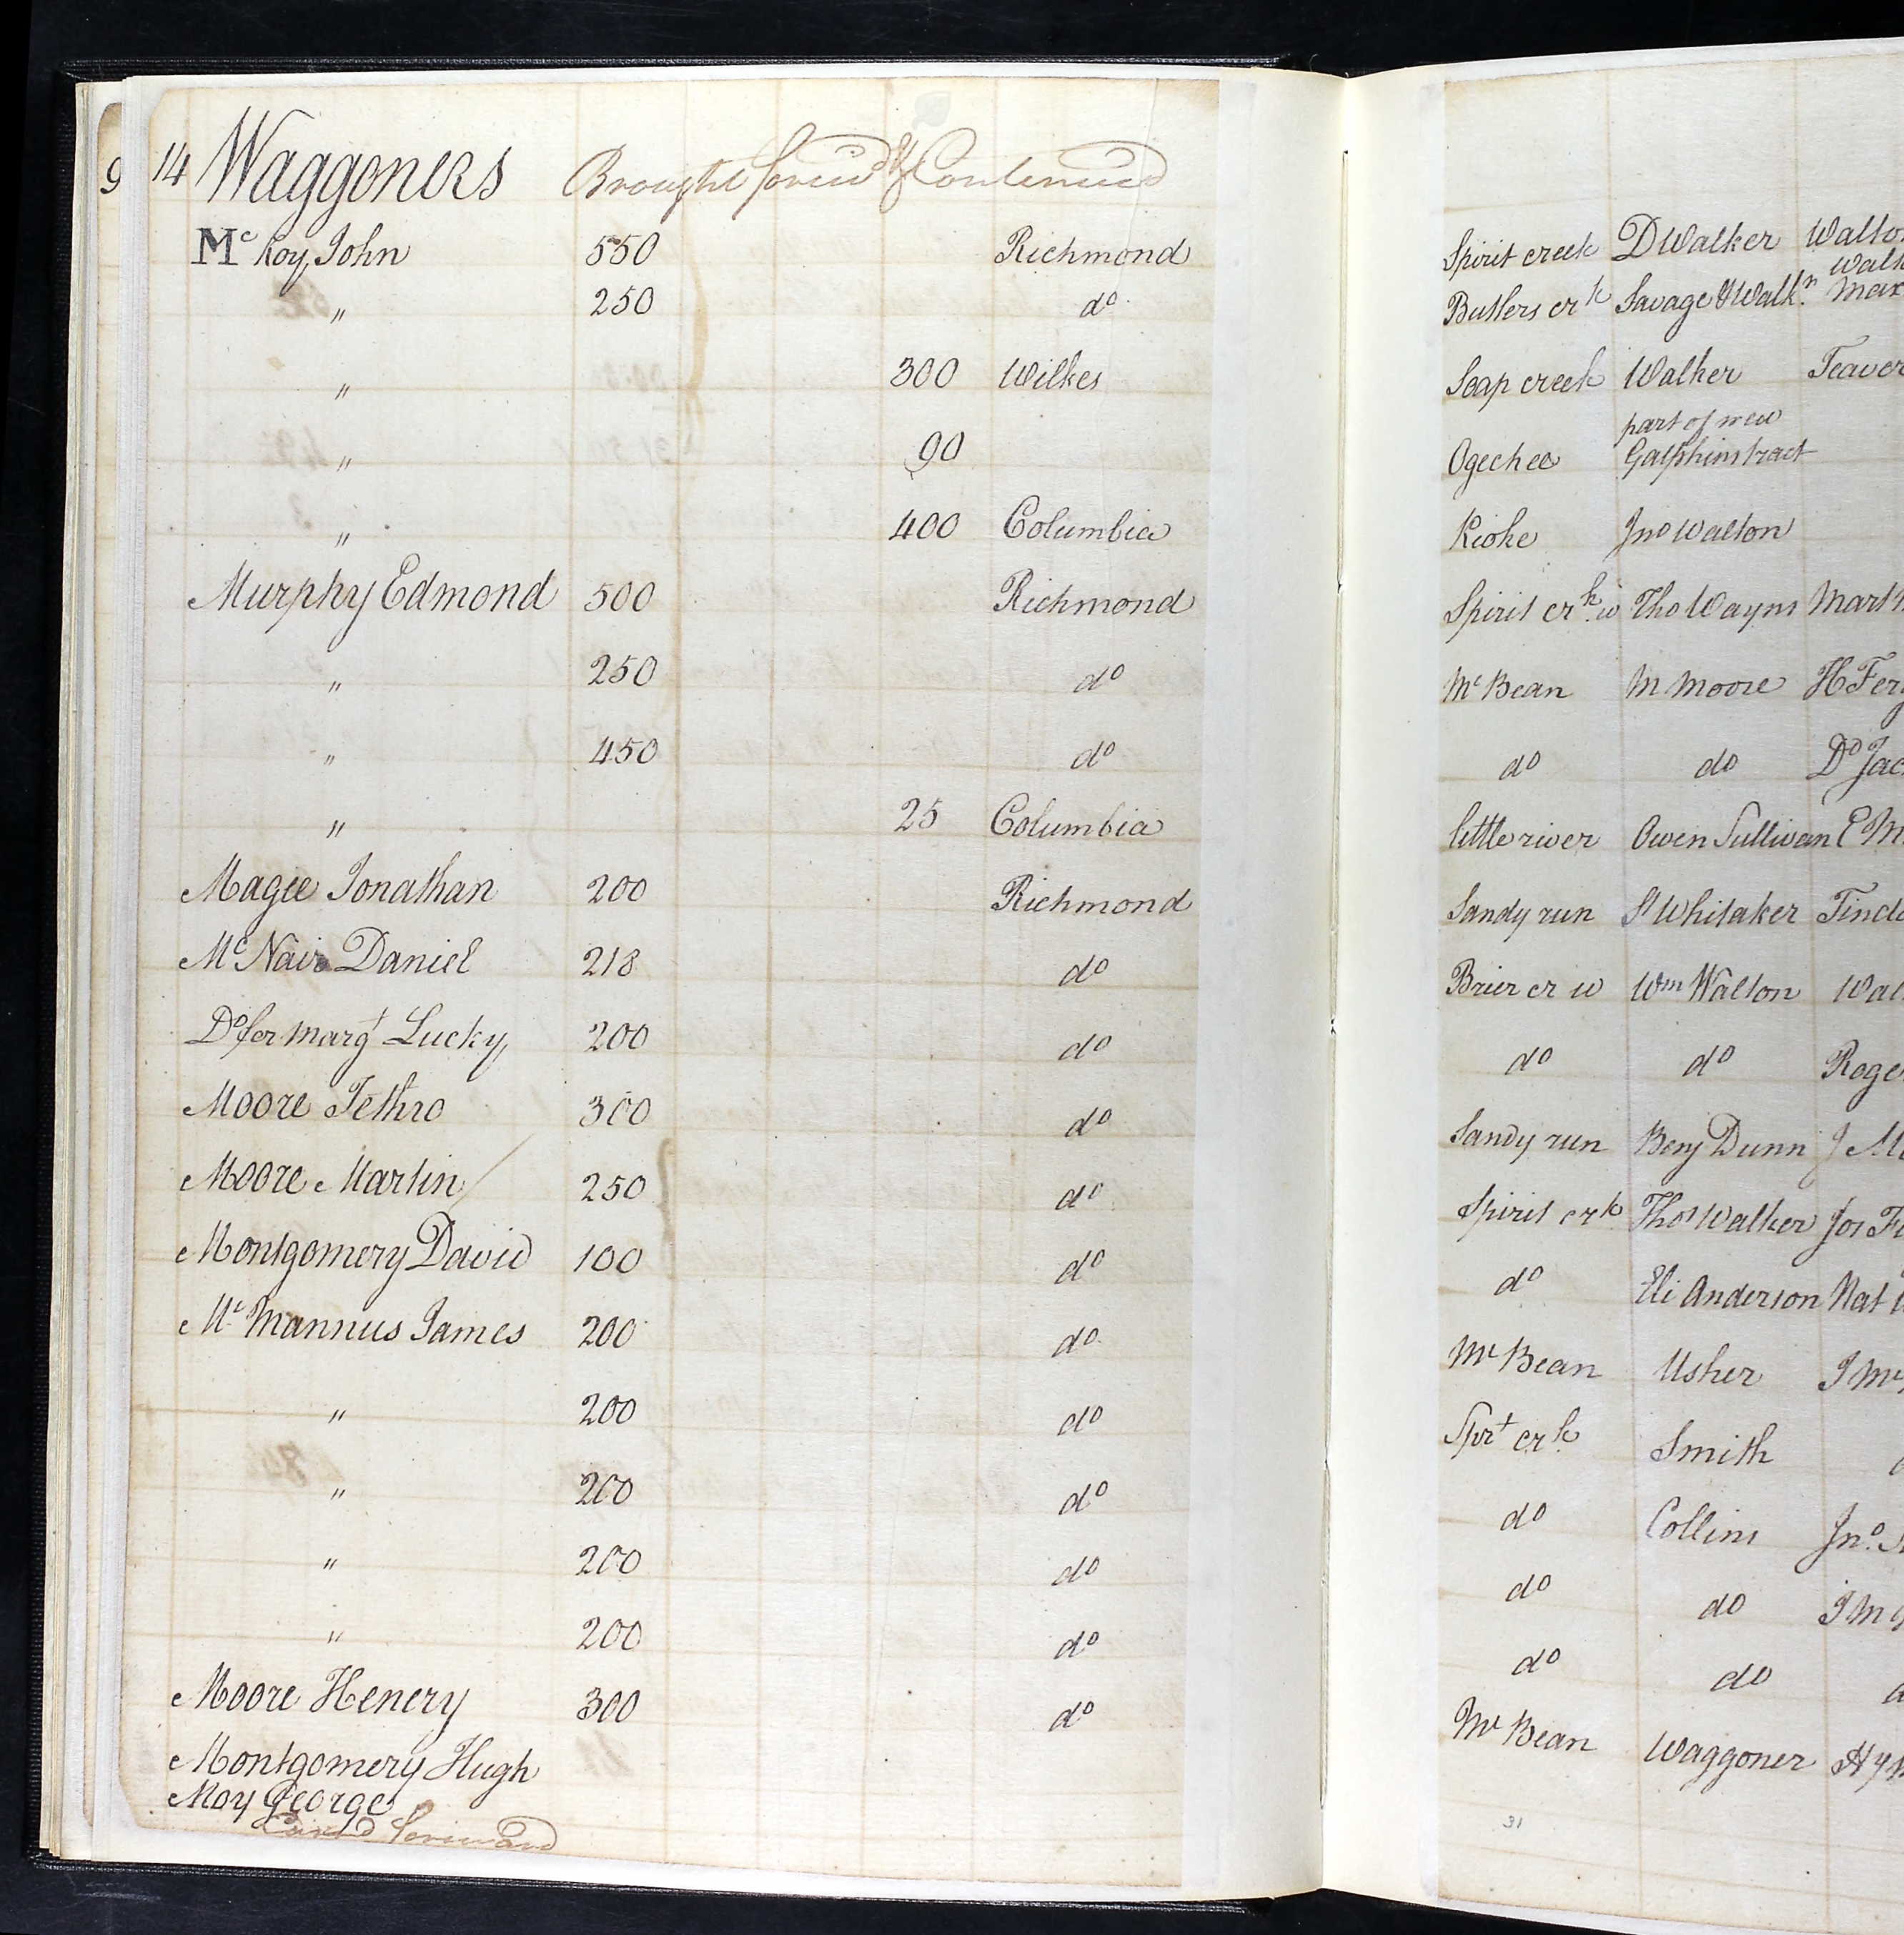 9
14 Waggoners Brought forwd & Continued
Mc Koy, John 550 Richmond
" 250 do
" 300 Wilkes
" 90
" 400 Columbia
Murphy Edmond 500 Richmond
" 250 do
" 450 do
" 25 Columbia
Magee Jonathan 200 Richmond
Mc Nair Daniel 218 do
Do for Margt Lucky 200 do
Moore Jethro 300 do
Moore Martin 250 do
Montgomery David 100 do
Mc Mannus James 200 do
" 200 do
" 200 do
" 200 do
" 200 do
Moore Henery 300 do
Montgomery Hugh
Moy George
Carrd forward
Spirit creek D Walker Walto
Walk
Butlers crk Savage & Walkn Max
Soap creek Walker Teaver
part of new
Ogechee Galphins tract
Kioke Jno Walton
Spirit crk w Tho Wayns Mart
Mc Bean M Moore H Fer
do do Do Jac
little river Owen Sullivan E M
Sandy run S Whitaker Tind
Brier cr w Wm Walton Wal
do do Roge
Sandy run Benj Dunn J M
Spirit crk Thos Walker Jos F
do Eli Anderson Nat
Mc Bean Usher J Mc
Sprt crk Smith
do Collins Jno.
do do J M
do do
Mc Bean Waggoner Hy
31